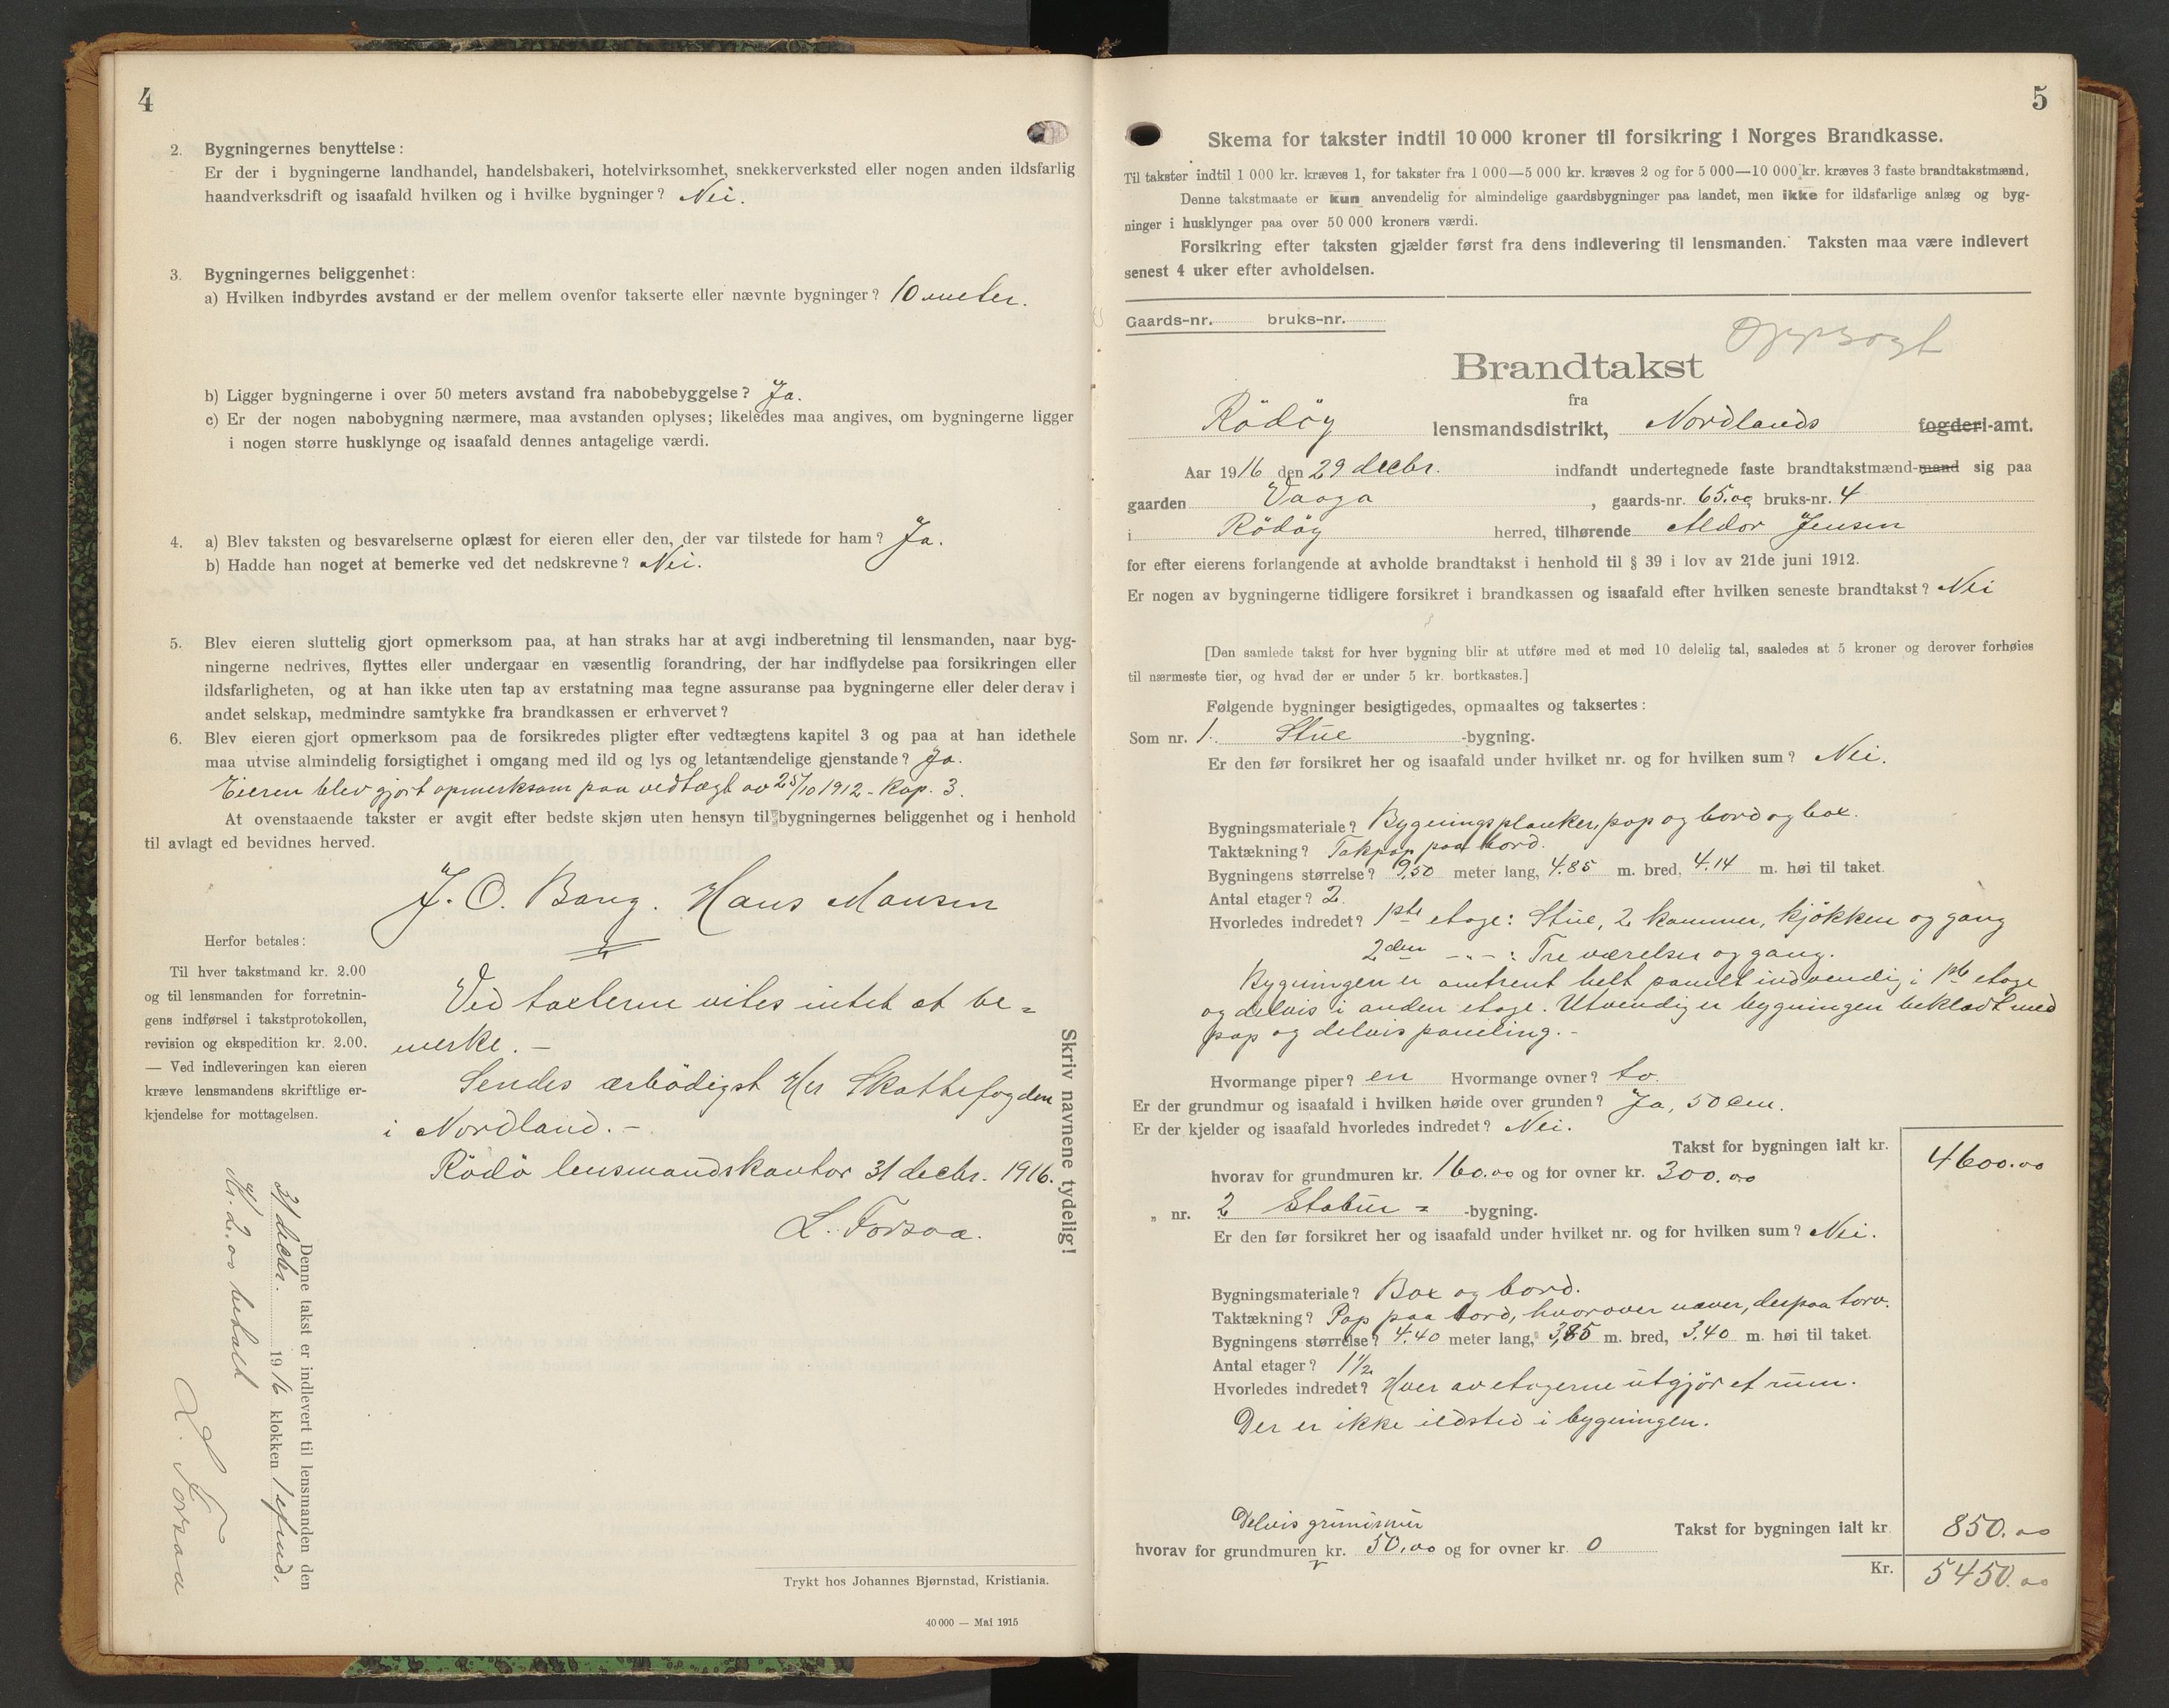 4
2. Bygningernes benyttelse:
Er der i bygningerne landhandel, handelsbakeri, hotelvirksomhet, snekkerverksted eller nogen anden ildsfarlig
haandverksdrift og isaafald hvilken og i hvilke bygninger? Nei.
3. Bygningernes beliggenhet:
a) Hvilken indbyrdes avstand er der mellem ovenfor takserte eller nævnte bygninger? 10 meter.
b) Ligger bygningerne i over 50 meters avstand fra nabobebyggelse? Ja.
c) Er der nogen nabobygning nærmere, maa avstanden oplyses; likeledes maa angives, om bygningerne ligger
i nogen større husklynge og isaafald dennes antagelige værdi.
4. a) Blev taksten og besvarelserne oplæst for eieren eller den, der var tilstede for ham? Ja.
b) Hadde han noget at bemerke ved det nedskrevne? Nei.
5. Blev eieren sluttelig gjort opmerksom paa, at han straks har at avgi indberetning til lensmanden, naar byg-
ningerne nedrives, flyttes eller undergaar en væsentlig forandring, der har indflydelse paa forsikringen eller
ildsfarligheten, og at han ikke uten tap av erstatning maa tegne assuranse paa bygningerne eller deler derav i
andet selskap, medmindre samtykke fra brandkassen er erhvervet?
6. Blev eieren gjort opmerksom paa de forsikredes pligter efter vedtægtens kapitel 3 og paa at han idethele
maa utvise almindelig forsigtighet i omgang med ild og lys og letantændelige gjenstande? Ja.
Eieren blev gjort opmerksom paa vedtægt av 25/10 1912 - Kap. 3.
At ovenstaaende takster er avgit efter bedste skjøn uten hensyn til bygningernes beliggenhet og i henhold
til avlagt ed bevidnes herved.
J. O. Bang. Hans Monsen
Herfor betales:
Til hver takstmand kr. 2.00
og til lensmanden for forretnin-
gens indførsel i takstprotokollen,
revision og ekspedition kr. 2.00.
— Ved indleveringen kan eieren
kræve lensmandens skriftlige er-
kjendelse for mottagelsen.
Ved taxterne vites intet at be=
merke. -
Sendes ærbödigst Her Skattefogden
i Nordland. -
Rödö lensmandskontor 31 decbr. 1916.
L. Forsaa.
Skriv navnene tydelig!
Denne takst er indlevert til lensmanden den
31 decbr. 1916 klokken 1 efmd.
Kr. 2.00 betalt
L. Forsaa
Trykt hos Johannes Bjørnstad, Kristiania.
40 000 — Mai 1915
5
Skema for takster indtil 10 000 kroner til forsikring i Norges Brandkasse.
Til takster indtil 1 000 kr. kræves 1, for takster fra 1 000—5 000 kr. kræves 2 og for 5 000—10 000 kr. kræves 3 faste brandtakstmænd.
Denne takstmaate er kun anvendelig for almindelige gaardsbygninger paa landet, men ikke for ildsfarlige anlæg og byg-
ninger i husklynger paa over 50 000 kroners værdi.
Forsikring efter taksten gjælder først fra dens indlevering til lensmanden. Taksten maa være indlevert
senest 4 uker efter avholdelsen.
Gaards-nr. bruks-nr.
Oppsagt
Brandtakst
fra
Rödöy lensmandsdistrikt, Nordlands fogderi-amt.
Aar 1916 den 29 decbr. indfandt undertegnede faste brandtakstmænd-mand sig paa
gaarden Vaaga, gaards-nr. 65.og bruks-nr. 4
i Rödöy herred, tilhørende Aldor Jensen
for efter eierens forlangende at avholde brandtakst i henhold til § 39 i lov av 21de juni 1912.
Er nogen av bygningerne tidligere forsikret i brandkassen og isaafald efter hvilken seneste brandtakst? Nei
[Den samlede takst for hver bygning blir at utføre med et med 10 delelig tal, saaledes at 5 kroner og derover forhøies
til nærmeste tier, og hvad der er under 5 kr. bortkastes.]
Følgende bygninger besigtigedes, opmaaltes og taksertes:
Som nr. 1. Stue -bygning.
Er den før forsikret her og isaafald under hvilket nr. og for hvilken sum? Nei.
Bygningsmateriale? Bygningsplanker, pap og bord og box.
Taktækning? Takpap paa bord.
Bygningens størrelse? 9,50 meter lang, 4.85 m. bred, 4.14 m. høi til taket.
Antal etager? 2.
Hvorledes indredet? 1ste etage: Stue, 2 kammer, kjökken og gang
2den -"- : Tre værelser og gang.
Bygningen er omtrent helt panelt indvendig i 1ste etage
og delvis i anden etage. Utvendig er bygningen beklædt med
pap og delvis paneling. -
Hvormange piper? en Hvormange ovner? to.
Er der grundmur og isaafald i hvilken høide over grunden? Ja, 50 cm.
Er der kjelder og isaafald hvorledes indredet? Nei.
Takst for bygningen ialt kr. 4600.00
hvorav for grundmuren kr. 160.00 og for ovner kr. 300.00
„ nr. 2 Stabur = -bygning.
Er den før forsikret her og isaafald under hvilket nr. og for hvilken sum? Nei.
Bygningsmateriale? Box og bord.
Taktækning? Pap paa bord, hvorover næver, derpaa torv.
Bygningens størrelse? 4.40 meter lang, 3,85 m. bred, 3.40 m. høi til taket.
Antal etager? 1 1/2
Hvorledes indredet? Hver av etagerne utgjör et rum.
Der er ikke ildsted i bygningen.
Delvis grundmur
Takst for bygningen ialt kr. 850.00
hvorav for grundmuren kr. 50.00 og for ovner kr. 0
Kr. 5450.00